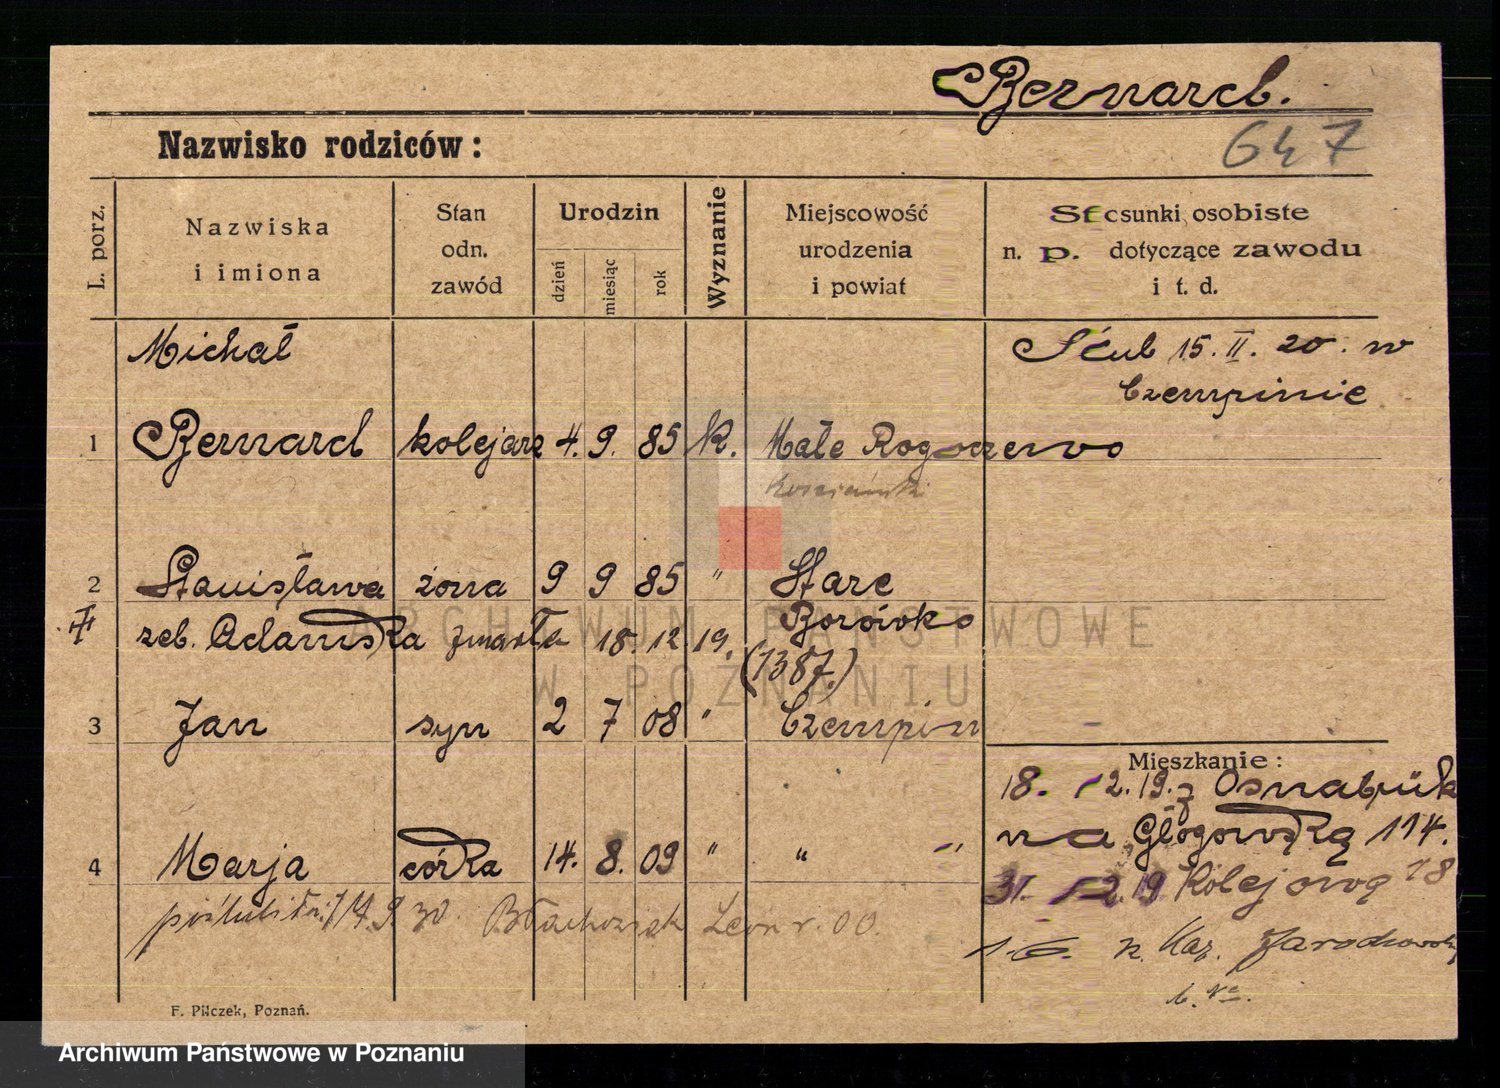 Bernard.
Nazwisko rodziców:
647
L. porz.
Nazwiska
i imiona
Stan
odn.
zawód
Urodzin
dzień
miesiąc
rok
Wyznanie
Miejscowość
urodzenia
i powiat
Stosunki osobiste
n. p. dotyczące zawodu
i t. d.
Michał
Ślub 15. II. 20. w
Czempiniu
1 Bernard kolejarz 4. 9. 85 k. Małe Rogoczewo
2 Stanisława żona 9 9 85 " Stare
Borówko
zeb. Adamska zmarła 18. 12 19.
(1387.)
3 Jan syn 2 7 08 " Czempin
Mieszkanie:
18. 12. 19. z Osnabrük
na Głogowską 114.
4 Marja córka 14. 8. 09 " " "
31. 12. 19 Kolejową 18
14.9.30. Leon r. 00.
n. Kaz.
F. Pilczek, Poznań.
ARCHIWUM PAŃSTWOWE
W POZNANIU
Archiwum Państwowe w Poznaniu